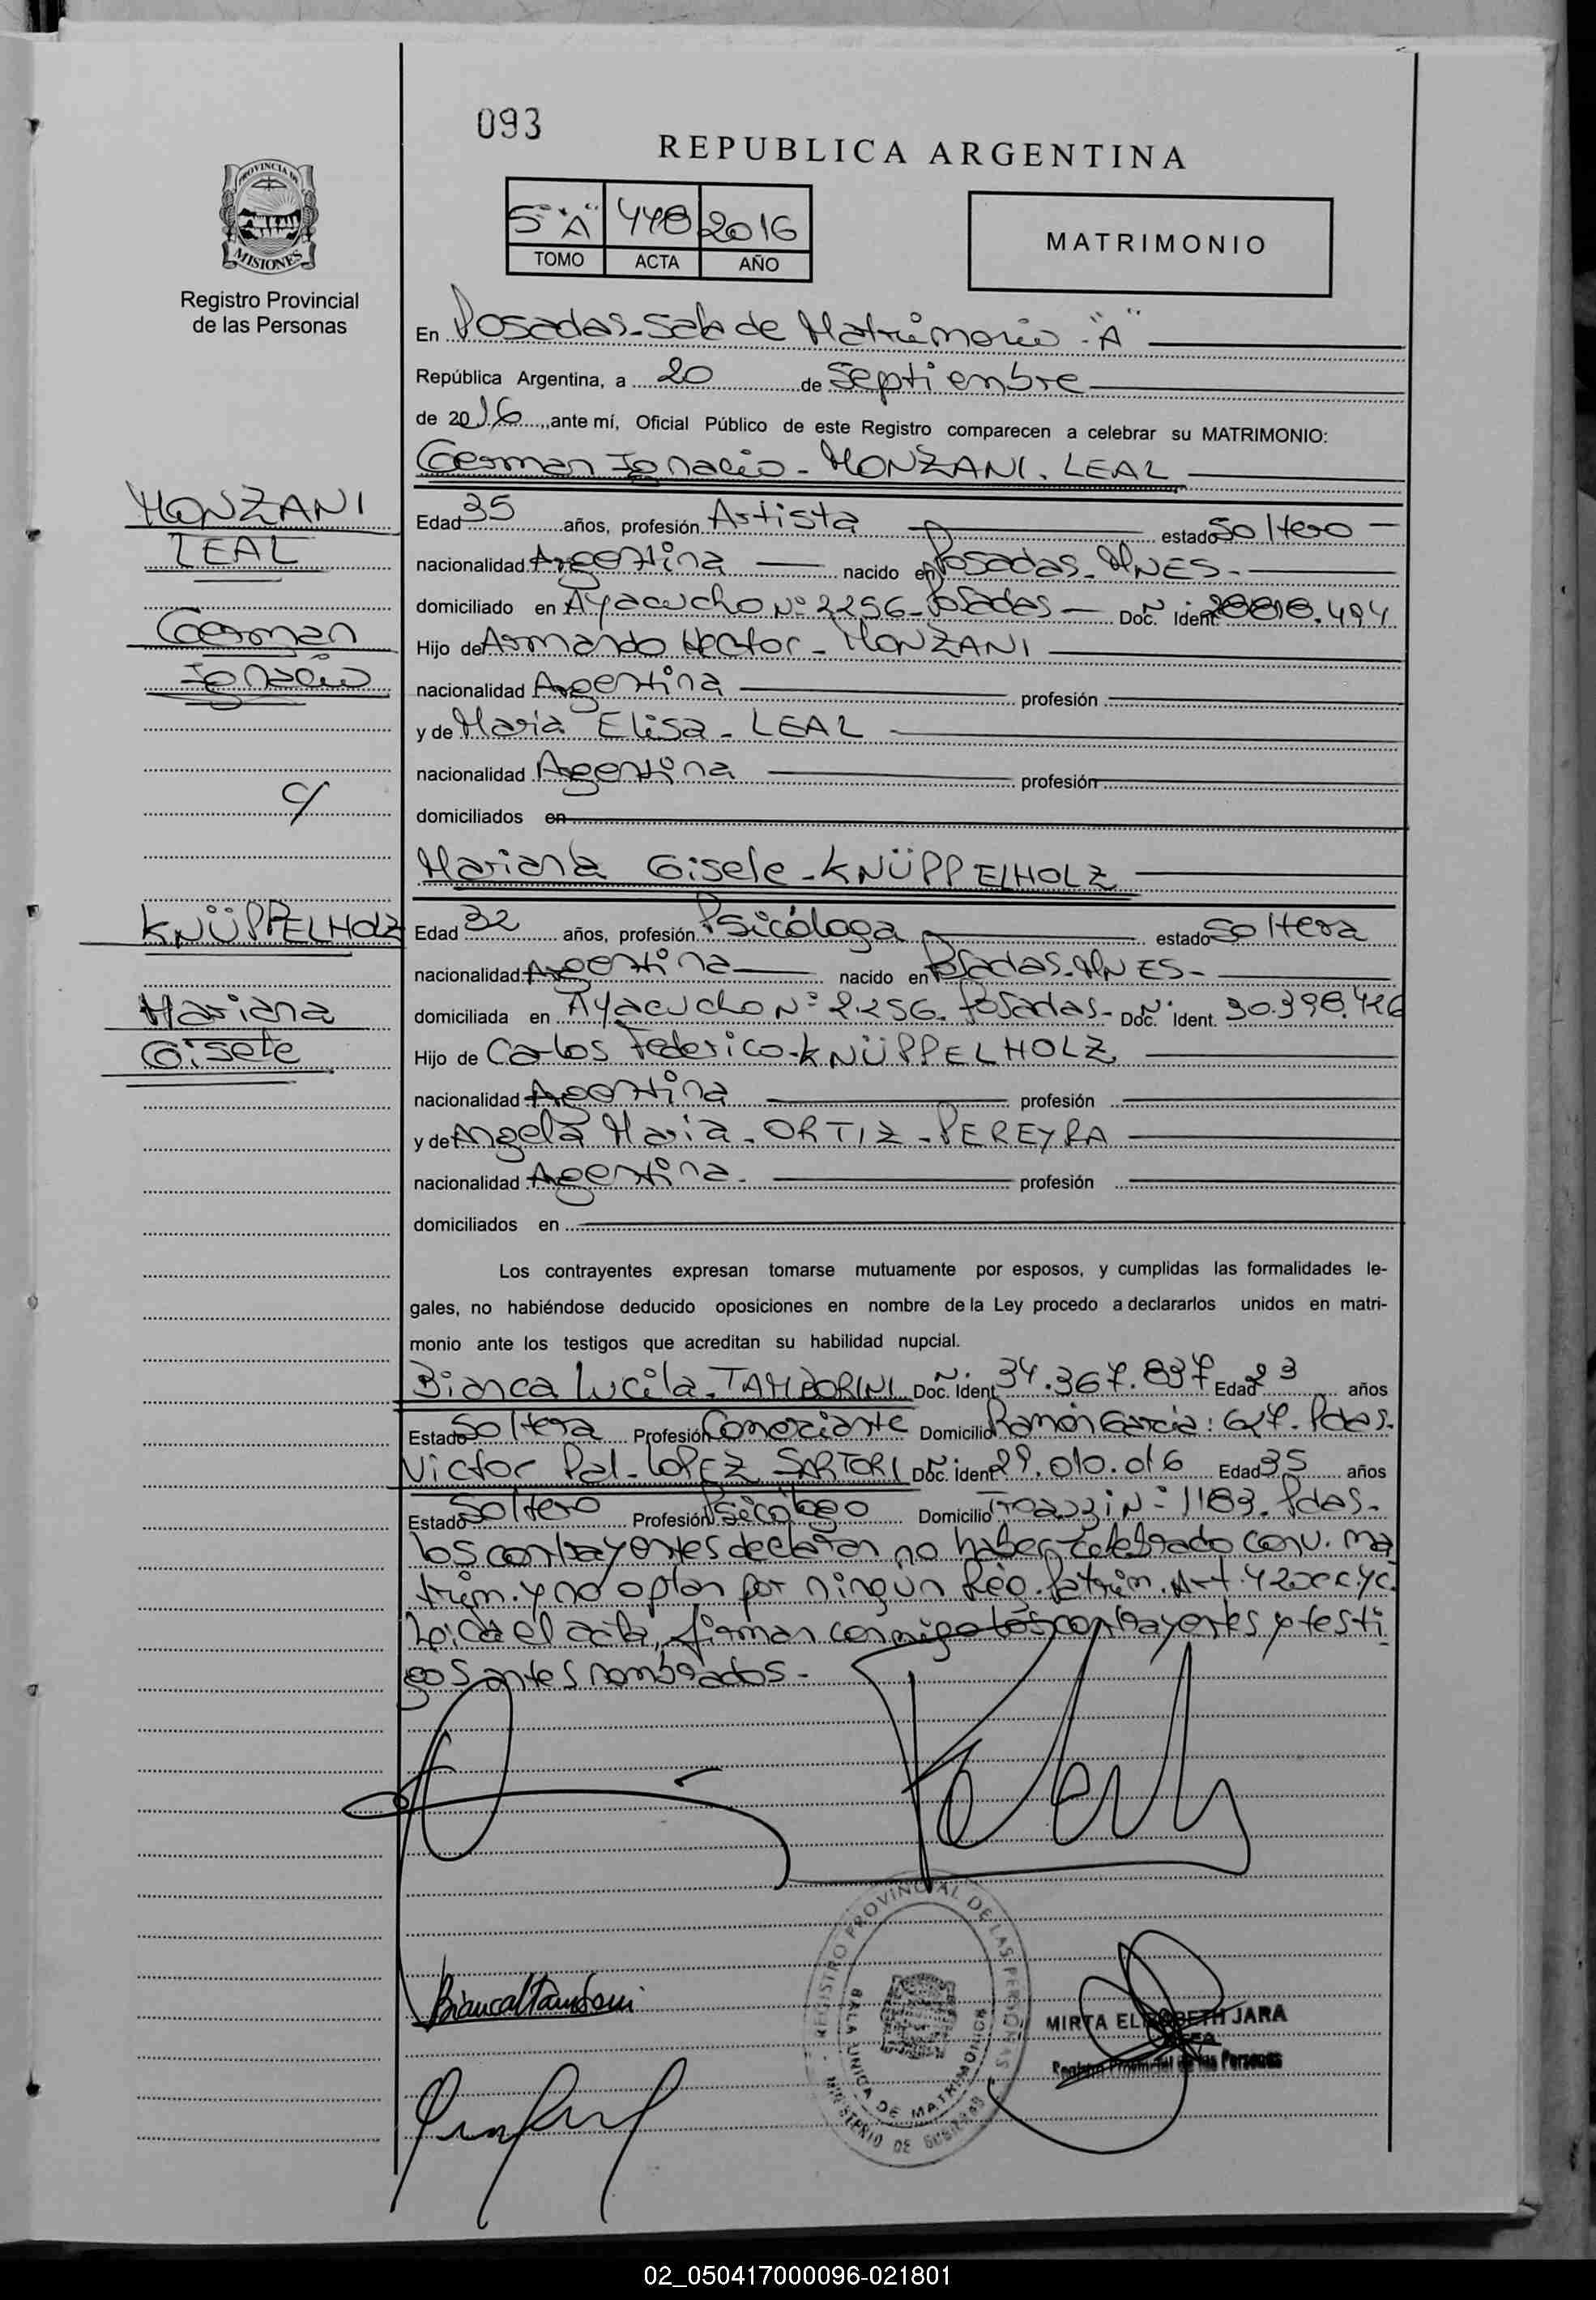 093
REPUBLICA ARGENTINA
PROVINCIA DE
MISIONES
Registro Provincial
de las Personas
5° "A" 448 2016
TOMO ACTA AÑO
MATRIMONIO
En Posadas-Sala de Matrimonio-"A"
República Argentina, a 20 de Septiembre
de 2016, ante mí, Oficial Público de este Registro comparecen a celebrar su MATRIMONIO:
German Ignacio-MONZANI.LEAL
MONZANI
LEAL
German
Ignacio
Edad 35 años, profesión Artista estado Soltero
nacionalidad Argentina nacido en Posadas-MNES-
domiciliado en Ayacucho N° 2256-Posadas Doc. N° Ident. 28818.494
Hijo de Armando Hector-MONZANI
nacionalidad Argentina profesión
y de Maria Elisa-LEAL
nacionalidad Argentina profesión
c/
domiciliados en
Mariana Gisele-KNÜPPELHOLZ
KNÜPPELHOLZ
Mariana
Gisele
Edad 32 años, profesión Psicóloga estado Soltera
nacionalidad Argentina nacido en Posadas-MNES-
domiciliada en Ayacucho N° 2256. Posadas- Doc. N° Ident. 30.398.426
Hijo de Carlos Federico-KNÜPPELHOLZ
nacionalidad Argentina profesión
y de Angela Maria-ORTIZ-PEREYRA
nacionalidad Argentina- profesión
domiciliados en
Los contrayentes expresan tomarse mutuamente por esposos, y cumplidas las formalidades le-
gales, no habiéndose deducido oposiciones en nombre de la Ley procedo a declararlos unidos en matri-
monio ante los testigos que acreditan su habilidad nupcial.
Bianca Lucila-TAMBORINI Doc. N° Ident. 34.367.837 Edad 23 años
Estado Soltera Profesión Comerciante Domicilio Ramón Garcia: 627-Pdas-
Victor Pal-LOPEZ SARTORI Doc. N° ident. 29.010.016 Edad 35 años
Estado Soltero Profesión Psicólogo Domicilio N° 1183. Pdas-
los contrayentes declaran no haber celebrado conv. ma
trim. y no optan por ningún Reg. Patrim. Art. 420 CC.yC.
Leida el acta, firman conmigo los contrayentes y testi
gos antes nombrados-
Bianca Tamborini
REGISTRO PROVINCIAL DE LAS PERSONAS
SALA UNICA DE MATRIMONIOS
MINISTERIO DE GOBIERNO
MIRTA ELISABETH JARA
JEFA
Registro Provincial de las Personas
02_050417000096-021801